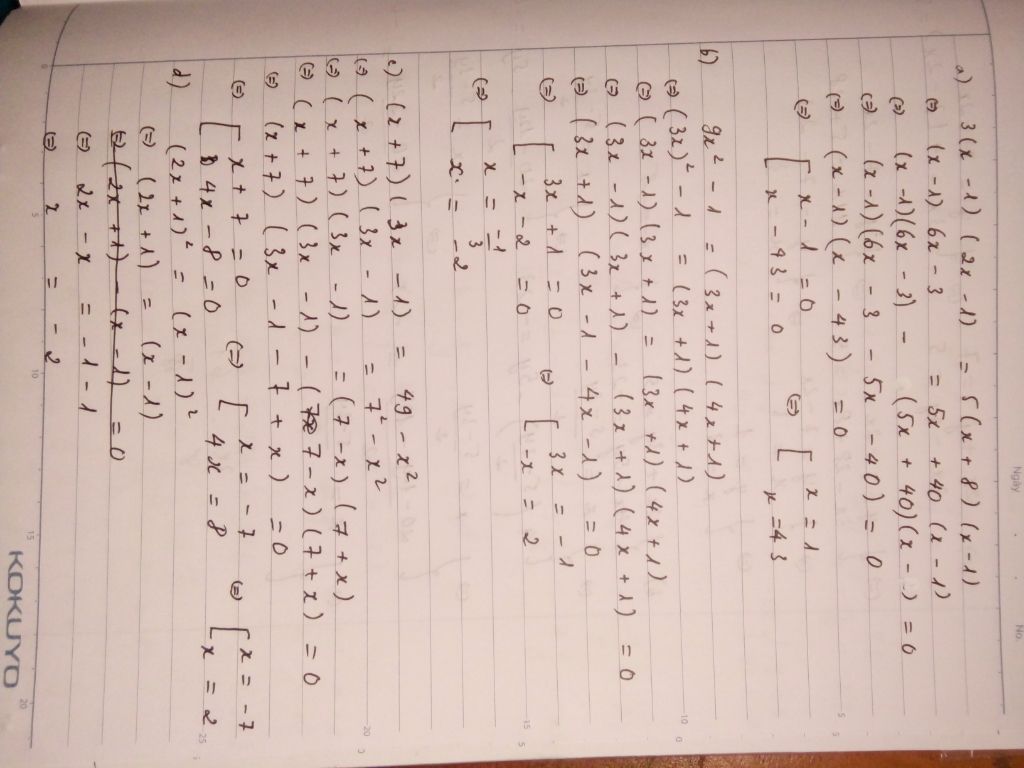 Ngày
No.
a) 3(x - 1) (2x - 1) = 5(x + 8) (x - 1)
(=) (x - 1) 6x - 3 = 5x + 40 (x - 1)
(=) (x - 1)(6x - 3) - (5x + 40)(x - 1) = 0
(=) (x - 1)(6x - 3 - 5x - 40) = 0
(=) (x - 1)(x - 43) = 0
(=) [ x - 1 = 0 (=) [ x = 1
x - 43 = 0 x = 43
b) 9x² - 1 = (3x + 1) (4x + 1)
(=) (3x)² - 1 = (3x + 1)(4x + 1)
(=) (3x - 1)(3x + 1) = (3x + 1)(4x + 1)
(=) (3x - 1)(3x + 1) - (3x + 1)(4x + 1) = 0
(=) (3x + 1) (3x - 1 - 4x - 1) = 0
(=) [ 3x + 1 = 0 (=) [ 3x = -1
-x - 2 = 0 -x = 2
(=) [ x = -1/3
x = -2
c) (x + 7)(3x - 1) = 49 - x²
(=) (x + 7) (3x - 1) = 7² - x²
(=) (x + 7)(3x - 1) = (7 - x) (7 + x)
(=) (x + 7) (3x - 1) - (7 - x)(7 + x) = 0
(=) (x + 7) (3x - 1 - 7 + x) = 0
(=) [ x + 7 = 0 (=) [ x = -7 (=) [ x = -7
4x - 8 = 0 4x = 8 x = 2
d) (2x + 1)² = (x - 1)²
(=) (2x + 1) = (x - 1)
(=) (2x + 1) - (x - 1) = 0
(=) 2x - x = -1 - 1
(=) x = -2
KOKUYO